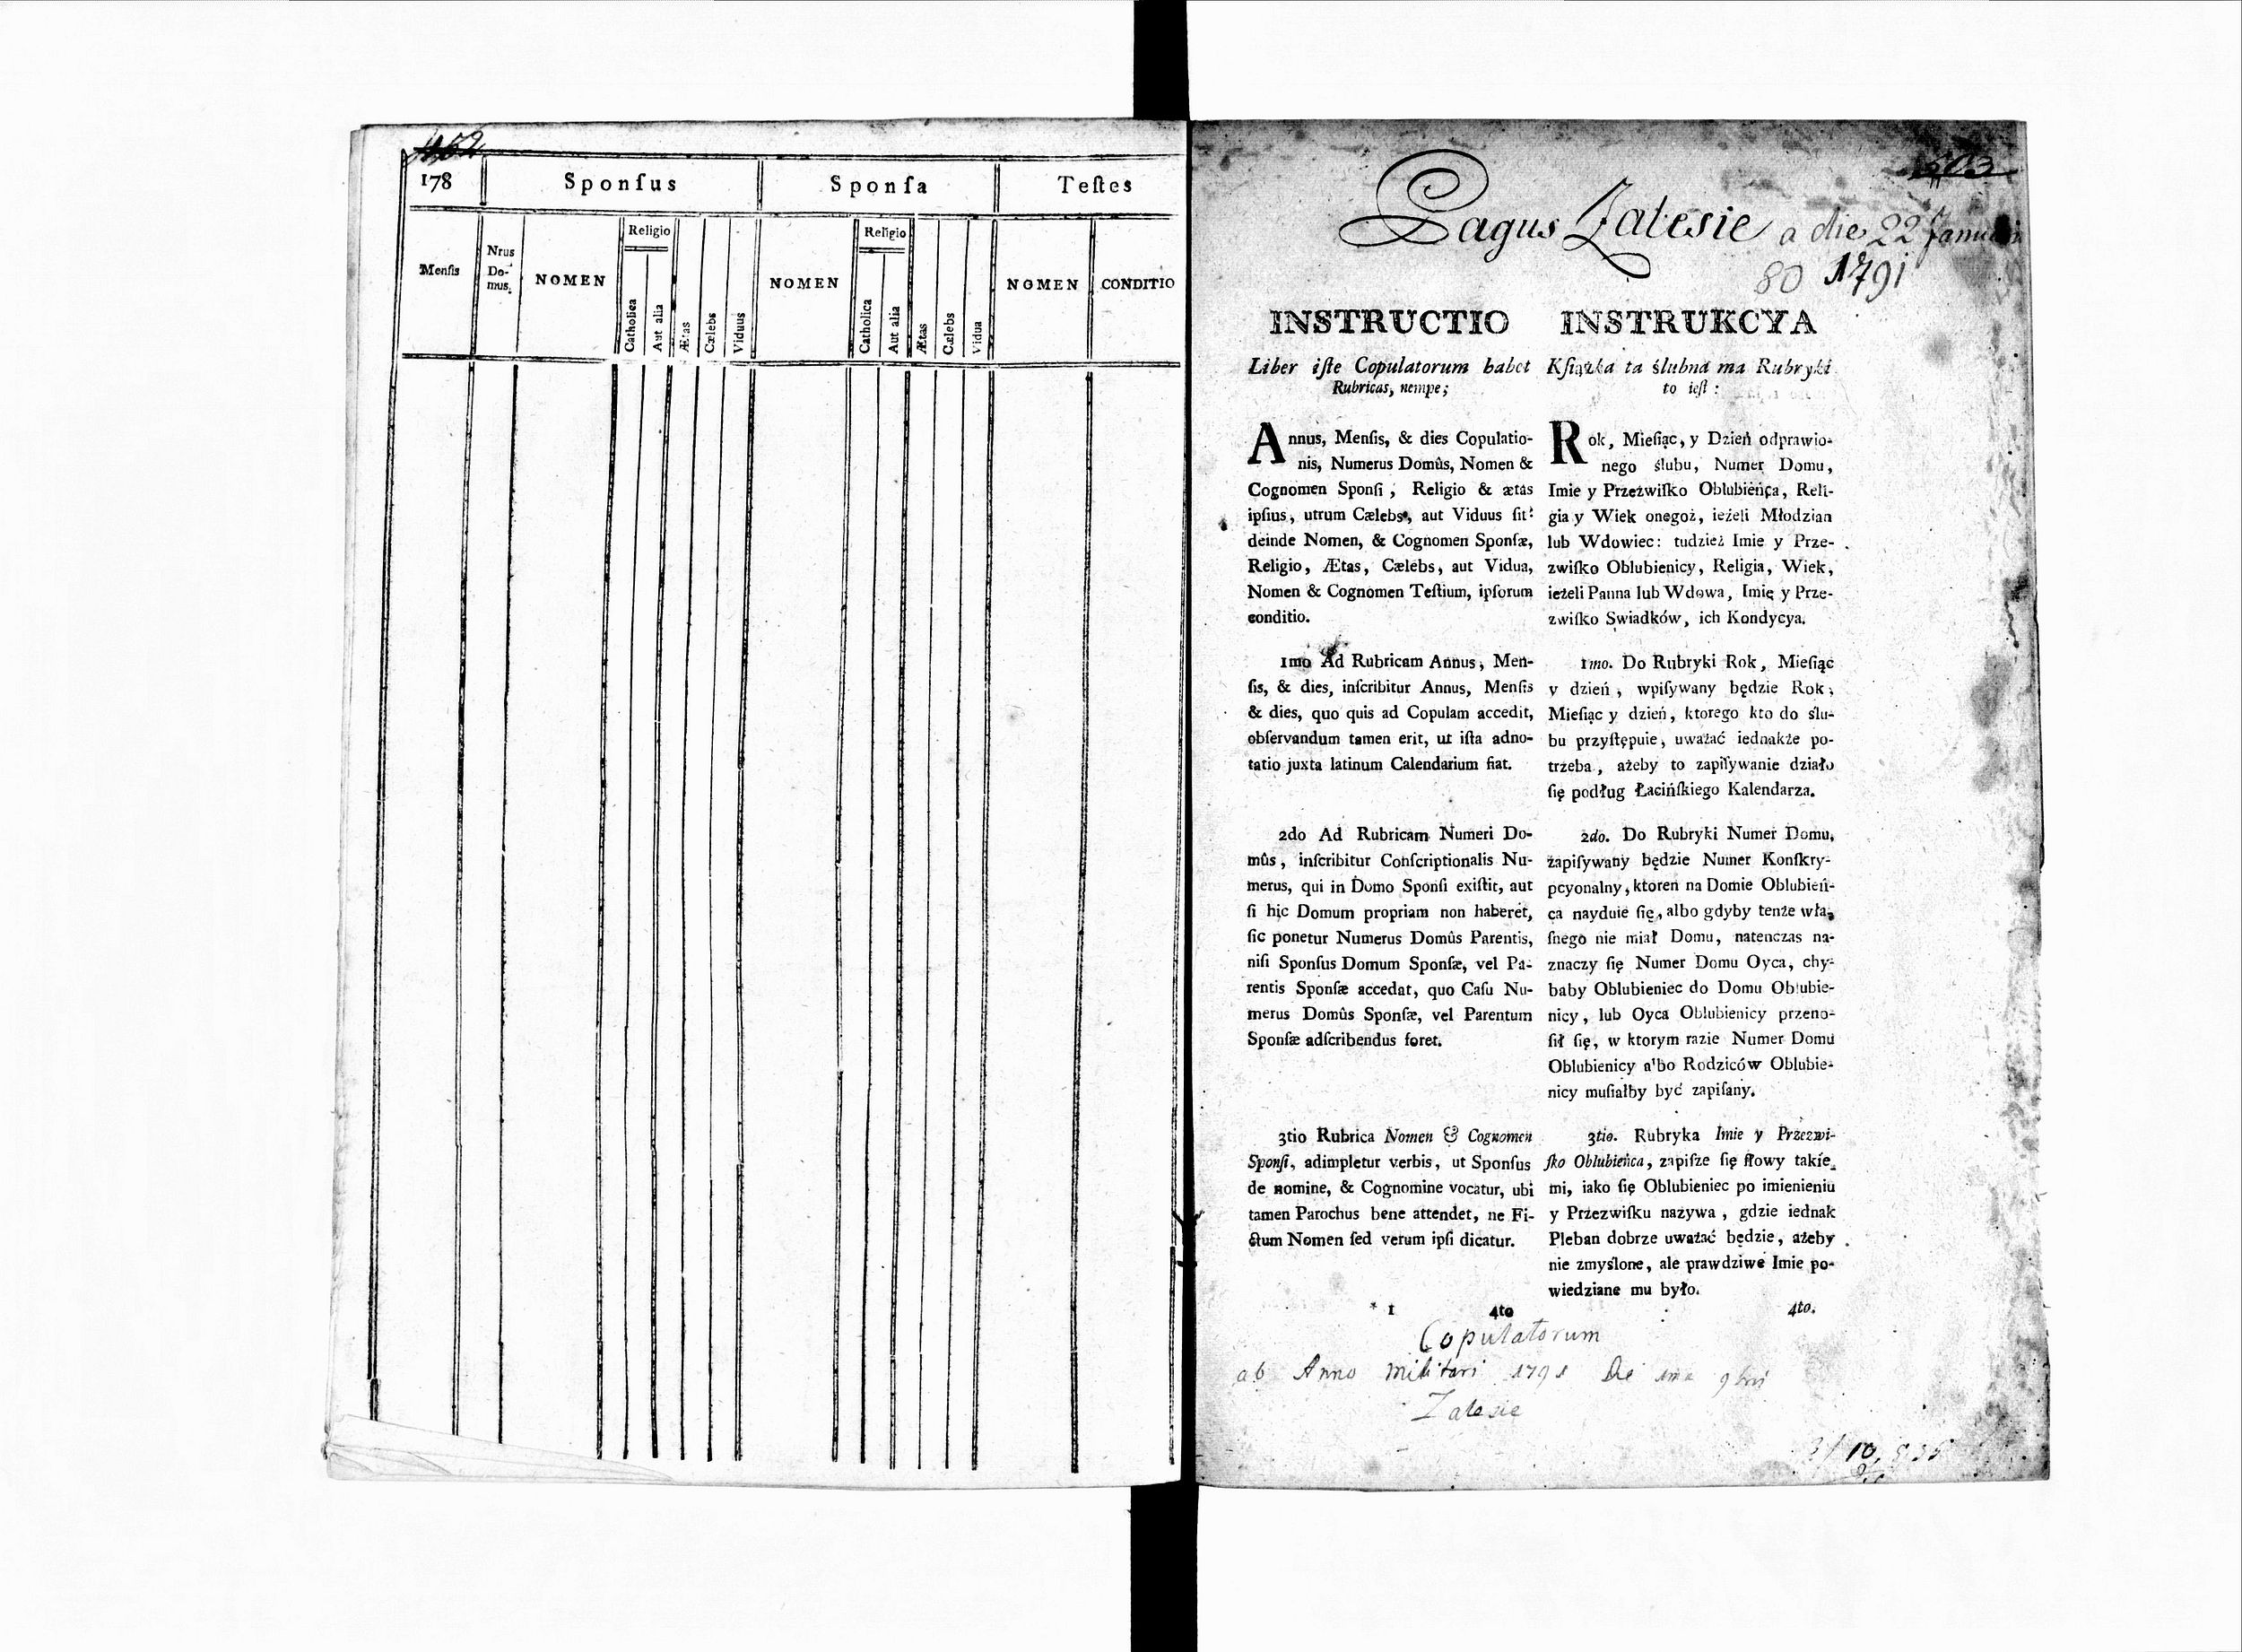 178
Sponſus
Sponſa
Teſtes
Menſis
Nrus
Do-
mus.
NOMEN
Religio
Catholica
Aut alia
Ætas
Cælebs
Viduus
NOMEN
Religio
Catholica
Aut alia
Ætas
Cælebs
Vidua
NOMEN
CONDITIO
603
Pagus Zalesie a die 22 Januarii
80 1791
INSTRUCTIO
Liber iſte Copulatorum habet
Rubricas, nempe;
Annus, Menſis, & dies Copulatio-
nis, Numerus Domûs, Nomen &
Cognomen Sponſi, Religio & ætas
ipſius, utrum Cælebs, aut Viduus ſit:
deinde Nomen, & Cognomen Sponſæ,
Religio, Ætas, Cælebs, aut Vidua,
Nomen & Cognomen Teſtium, ipſorum
conditio.
1mo Ad Rubricam Annus, Men-
ſis, & dies, inſcribitur Annus, Menſis
& dies, quo quis ad Copulam accedit,
obſervandum tamen erit, ut iſta adno-
tatio juxta latinum Calendarium fiat.
2do Ad Rubricam Numeri Do-
mûs, inſcribitur Conſcriptionalis Nu-
merus, qui in Domo Sponſi exiſtit, aut
ſi hic Domum propriam non haberet,
ſic ponetur Numerus Domûs Parentis,
niſi Sponſus Domum Sponſæ, vel Pa-
rentis Sponſæ accedat, quo Caſu Nu-
merus Domûs Sponſæ, vel Parentum
Sponſæ adſcribendus foret.
3tio Rubrica Nomen & Cognomen
Sponſi, adimpletur verbis, ut Sponſus
de nomine, & Cognomine vocatur, ubi
tamen Parochus bene attendet, ne Fi-
ctum Nomen ſed verum ipſi dicatur.
* 1 4to
INSTRUKCYA
Kſiążka ta ślubna ma Rubryki
to ieſt:
Rok, Mieſiąc, y Dzień odprawio-
nego ślubu, Numer Domu,
Imie y Przezwiſko Oblubieńca, Reli-
gia y Wiek onegoż, ieżeli Młodzian
lub Wdowiec: tudzież Imie y Prze-
zwiſko Oblubienicy, Religia, Wiek,
ieżeli Panna lub Wdowa, Imię y Prze-
zwiſko Swiadków, ich Kondycya.
1mo. Do Rubryki Rok, Mieſiąc
y dzień, wpiſywany będzie Rok,
Mieſiąc y dzień, ktorego kto do ślu-
bu przyſtępuie, uważać iednakże po-
trzeba, ażeby to zapiſywanie działo
ſię podług Łacińſkiego Kalendarza.
2do. Do Rubryki Numer Domu,
zapiſywany będzie Numer Konſkry-
pcyonalny, ktoren na Domie Oblubień-
ca nayduie ſię, albo gdyby tenże wła-
ſnego nie miał Domu, natenczas na-
znaczy ſię Numer Domu Oyca, chy-
baby Oblubieniec do Domu Oblubie-
nicy, lub Oyca Oblubienicy przeno-
ſił ſię, w ktorym razie Numer Domu
Oblubienicy albo Rodziców Oblubie-
nicy muſiałby być zapiſany.
3tio. Rubryka Imie y Przezwi-
ſko Oblubieńca, zapiſze ſię ſłowy takie-
mi, iako ſię Oblubieniec po imienieniu
y Przezwiſku nazywa, gdzie iednak
Pleban dobrze uważać będzie, ażeby
nie zmyślone, ale prawdziwe Imie po-
wiedziane mu było.
4to.
Copulatorum
ab Anno Militari 1791
Zalesie